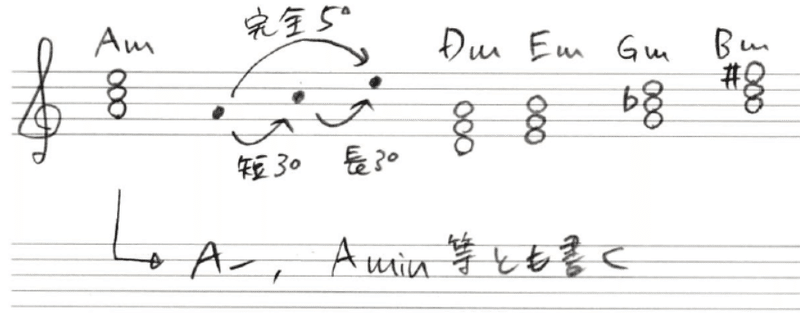 完全5°
Am Dm Em Gm Bm
短3° 長3°
A-, Amin 等とも書く